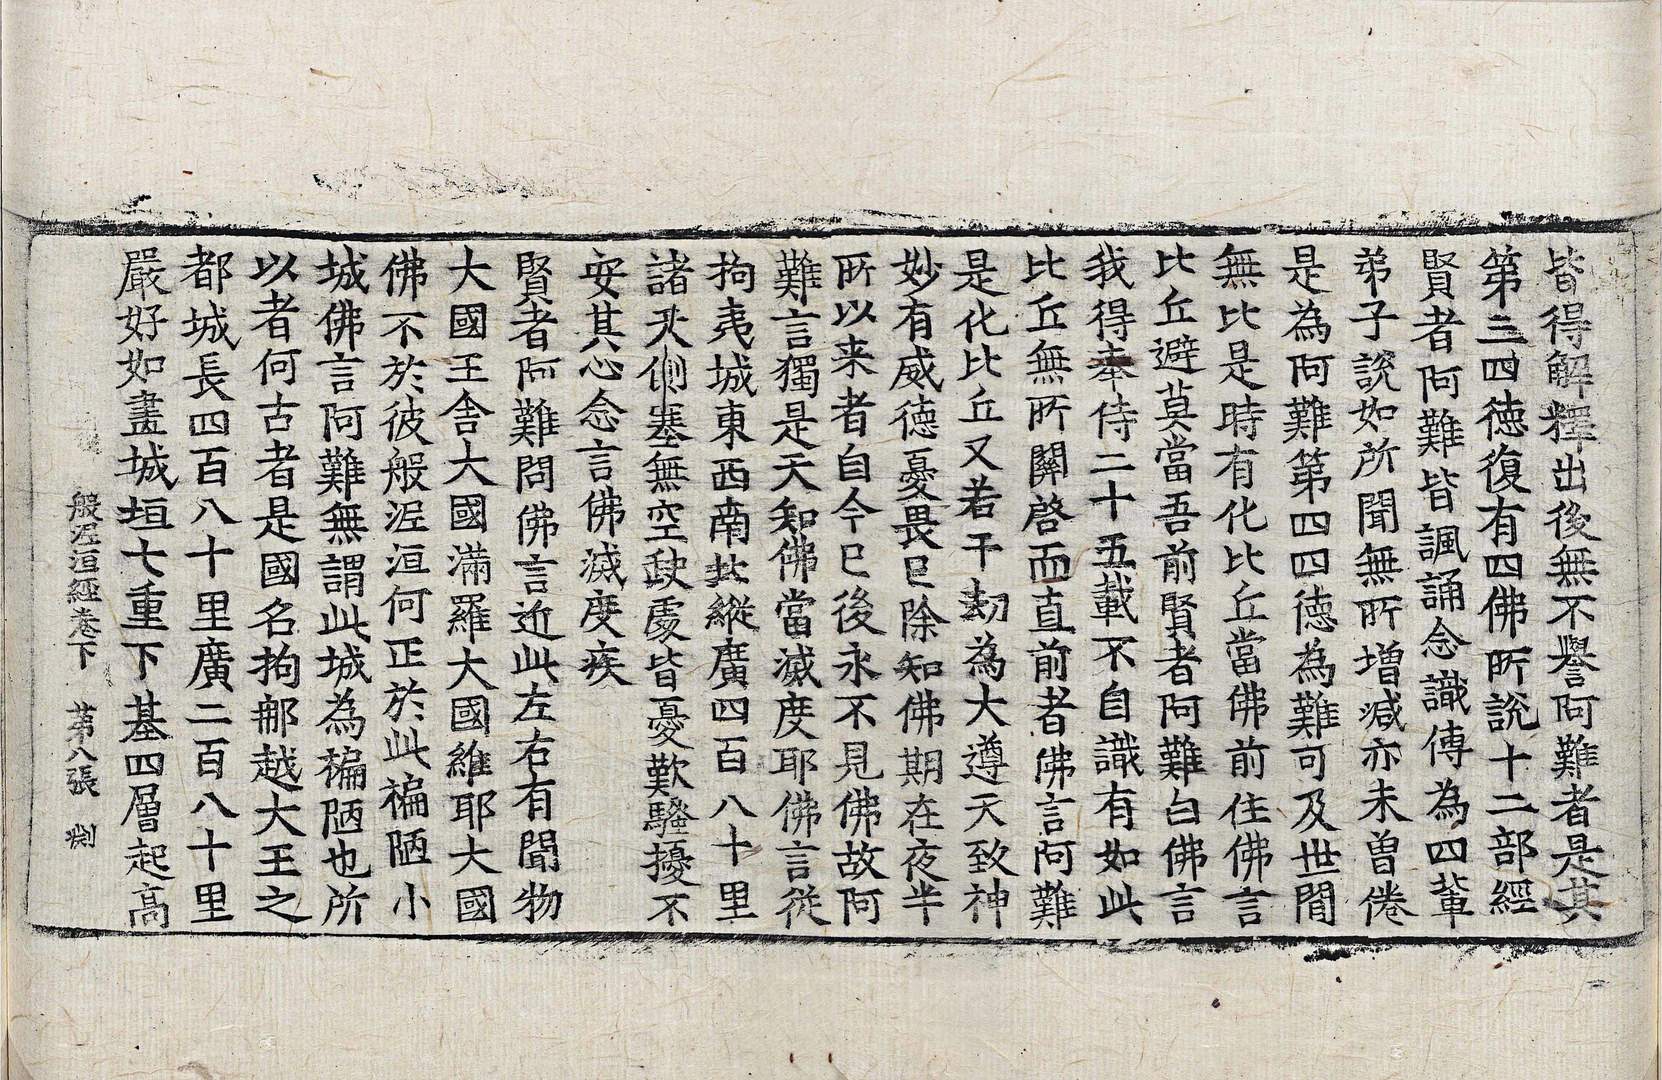 皆得解釋出後無不譽阿難者是其
第三四德復有四佛所說十二部經
賢者阿難皆諷誦念識傳為四輩
弟子說如所聞無所增減亦未曽倦
是為阿難第四四德為難可及世間
無比是時有化比丘當佛前住佛言
比丘避莫當吾前賢者阿難白佛言
我得奉侍二十五載不自識有如此
比丘無所關啓而直前者佛言阿難
是化比丘又若干劫為大遵天致神
妙有威德憂畏已除知佛期在夜半
所以来者自今已後永不見佛故阿
難言獨是天知佛當滅度耶佛言從
拘夷城東西南北縱廣四百八十里
諸天側塞無空缺處皆憂歎騷擾不
安其心念言佛滅度疾
賢者阿難問佛言近此左右有聞物
大國王舍大國滿羅大國維耶大國
佛不於彼般泥洹何正於此褊陋小
城佛言阿難無謂此城為褊陋也所
以者何古者是國名拘那越大王之
都城長四百八十里廣二百八十里
嚴好如畫城垣七重下基四層起高
般泥洹經卷下 第八張 惻